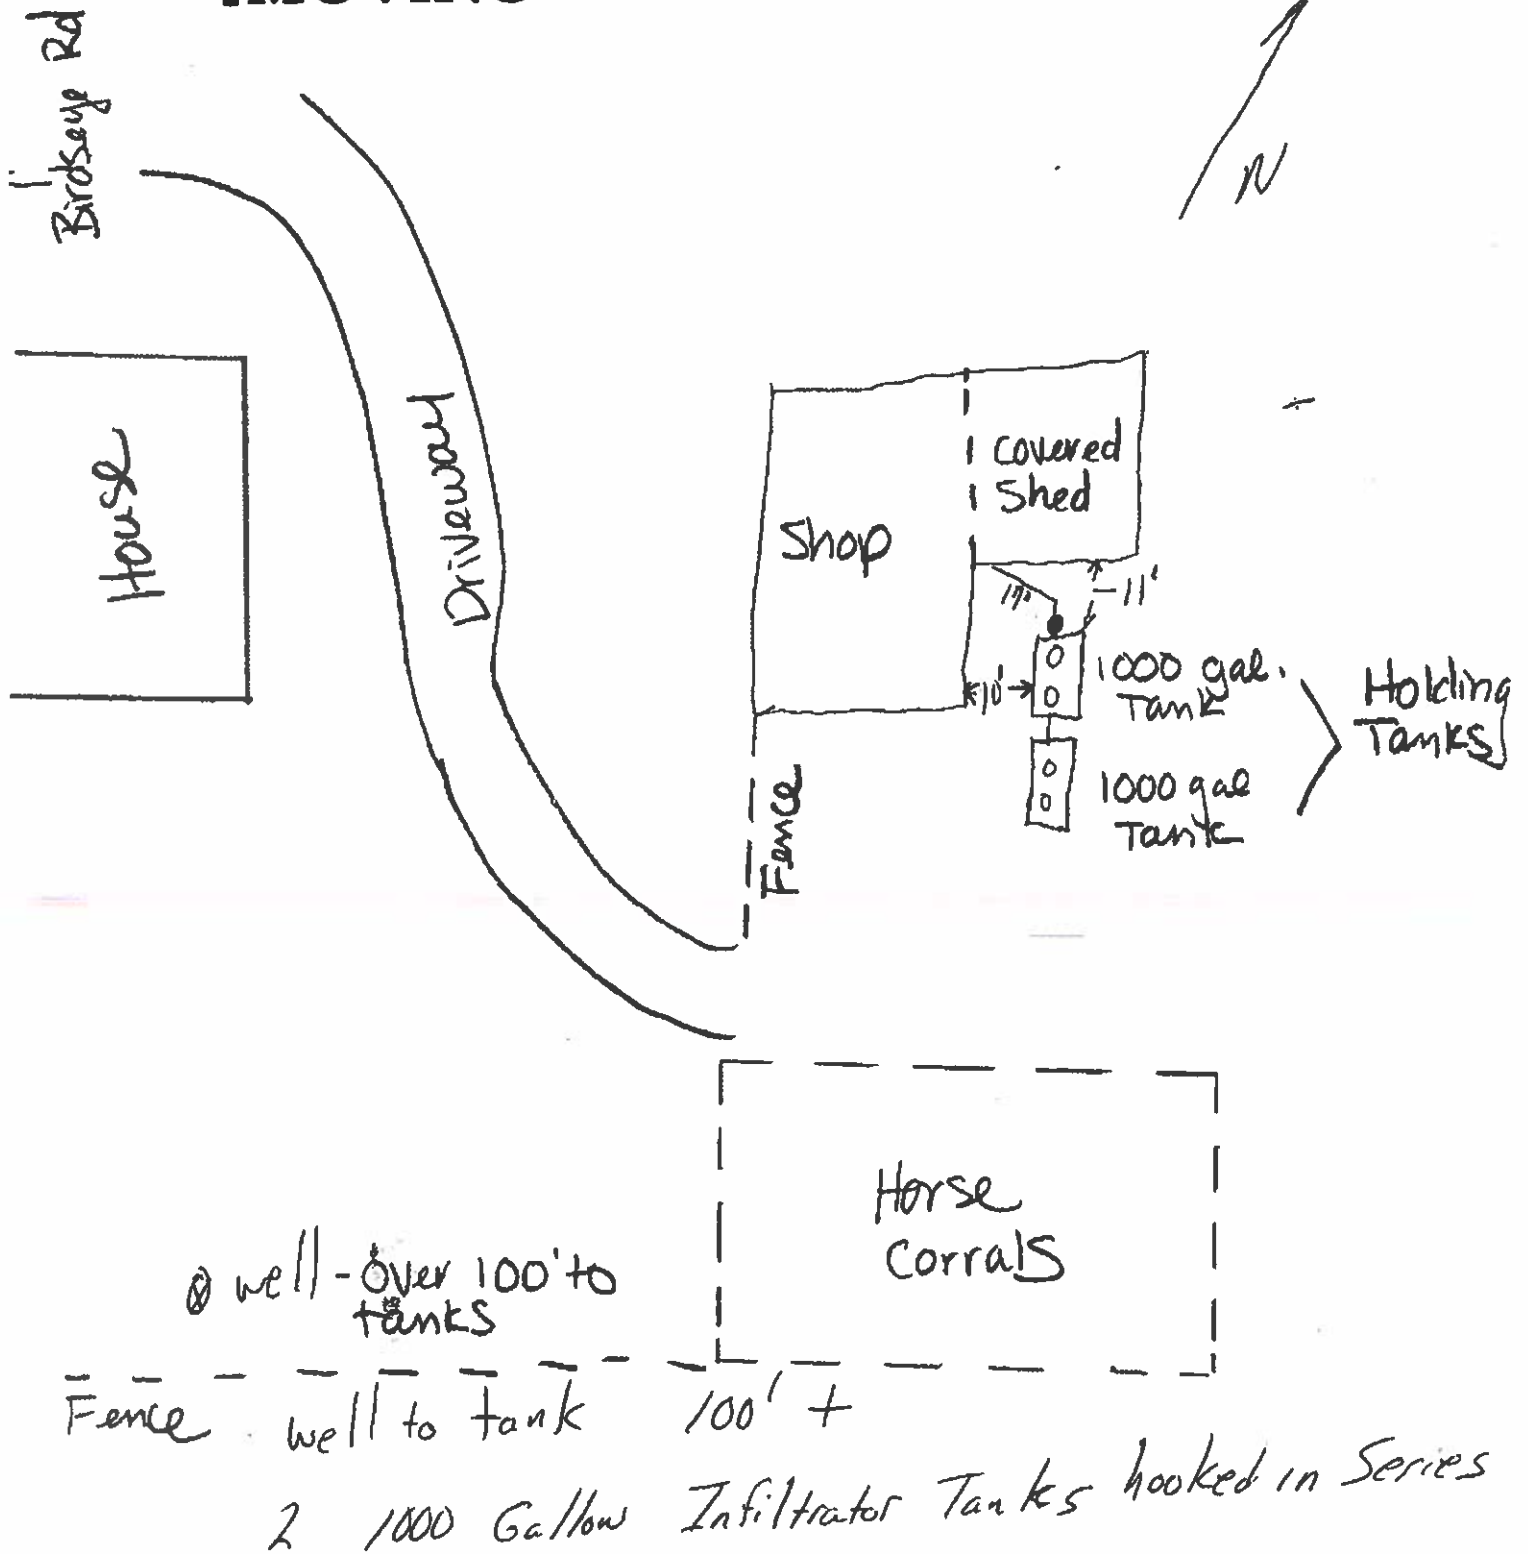 Birdseye Rd
N
House
Driveway
Covered
Shed
Shop
11'
10'
1000 gal.
Tank
Holding
Tanks
1000 gal
Tank
Fence
Horse
Corrals
well - Over 100' to
tanks
Fence
well to tank 100' +
2 1000 Gallon Infiltrator Tanks hooked in Series